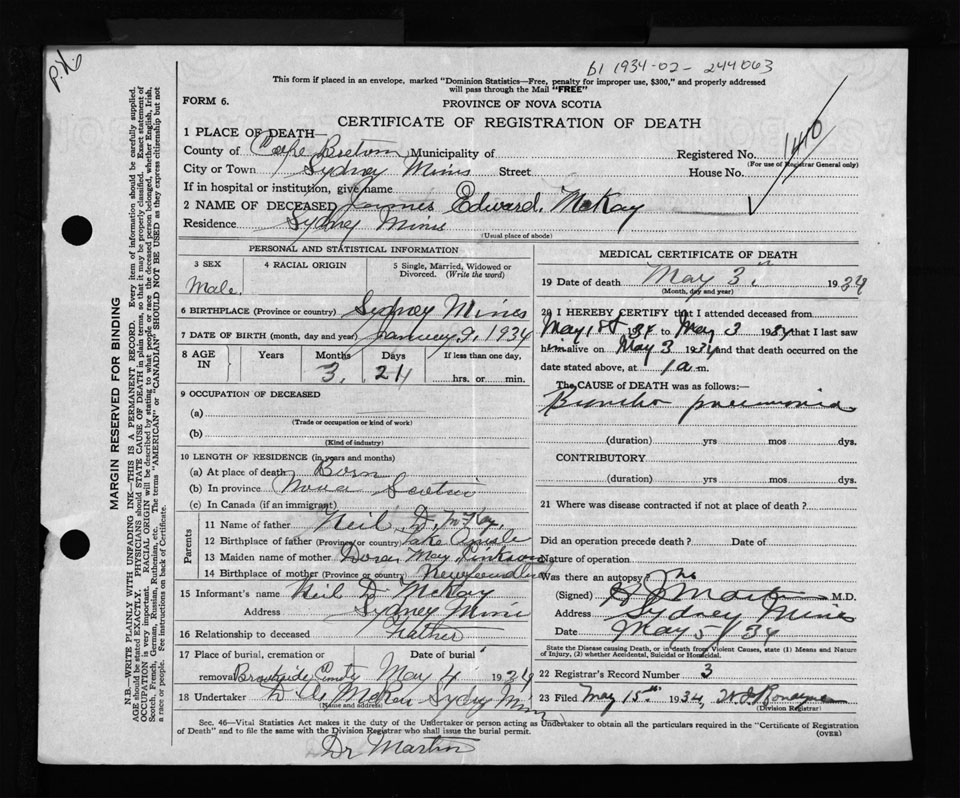 P.X.
61 1934-02-244063
This form if placed in an envelope, marked "Dominion Statistics—Free, penalty for improper use, $300," and properly addressed
will pass through the Mail "FREE"
FORM 6.
PROVINCE OF NOVA SCOTIA
CERTIFICATE OF REGISTRATION OF DEATH
1410
1 PLACE OF DEATH—
County of Cape Breton Municipality of Registered No.
(For use of Registrar General only)
City or Town Sydney Mines Street House No.
If in hospital or institution, give name
2 NAME OF DECEASED James Edward McKay
Residence Sydney Mines
(Usual place of abode)
PERSONAL AND STATISTICAL INFORMATION
3 SEX 4 RACIAL ORIGIN 5 Single, Married, Widowed or
Divorced. (Write the word)
Male.
6 BIRTHPLACE (Province or country) Sydney Mines
7 DATE OF BIRTH (month, day and year) January 9, 1934
8 AGE IN Years Months Days If less than one day,
3, 24 hrs. or min.
9 OCCUPATION OF DECEASED
(a)
(Trade or occupation or kind of work)
(b)
(Kind of industry)
10 LENGTH OF RESIDENCE (in years and months)
(a) At place of death Born
(b) In province Nova Scotia
(c) In Canada (if an immigrant)
Parents
11 Name of father Neil D. McKay,
12 Birthplace of father (Province or country) Lake Ainslie
13 Maiden name of mother Dora May
14 Birthplace of mother (Province or country) Newfoundland
15 Informant's name Neil D McKay
Address Sydney Mines
16 Relationship to deceased Father
17 Place of burial, cremation or Date of burial
removal Brookside Cemty May 4 1934
18 Undertaker Sydney Mines
(Name and address)
MEDICAL CERTIFICATE OF DEATH
19 Date of death May 3 1934
(Month, day and year)
20 I HEREBY CERTIFY that I attended deceased from
May 1st 34 to May 3 1934 that I last saw
him alive on May 3 1934 and that death occurred on the
date stated above, at 1 a.m.
The CAUSE OF DEATH was as follows:—
Broncho pneumonia
(duration) yrs mos dys.
CONTRIBUTORY
(duration) yrs mos dys.
21 Where was disease contracted if not at place of death?
Did an operation precede death? Date of
Nature of operation
Was there an autopsy? no
(Signed) Martin M.D.
Address Sydney Mines
Date May 5/34
State the Disease causing Death, or in death from Violent Causes, state (1) Means and Nature
of Injury, (2) whether Accidental, Suicidal or Homicidal.
22 Registrar's Record Number 3
23 Filed May 15th 1934,
(Division Registrar)
Sec. 46—Vital Statistics Act makes it the duty of the Undertaker or person acting as Undertaker to obtain all the particulars required in the "Certificate of Registration
of Death" and to file the same with the Division Registrar who shall issue the burial permit.
(OVER)
Dr Martin
MARGIN RESERVED FOR BINDING
N.B.—WRITE PLAINLY WITH UNFADING INK—THIS IS A PERMANENT RECORD. Every item of information should be carefully supplied.
AGE should be stated EXACTLY. PHYSICIANS should STATE CAUSE OF DEATH in plain terms, so that it may be properly classified. Exact statement of
OCCUPATION is very important. RACIAL ORIGIN will be described by stating to what people or race the deceased person belonged, whether English, Irish,
Scotch, French, German, Russian, Ruthenian, etc. The terms "AMERICAN" or "CANADIAN" SHOULD NOT BE USED as they express citizenship but not
a race or people. See instructions on back of Certificate.